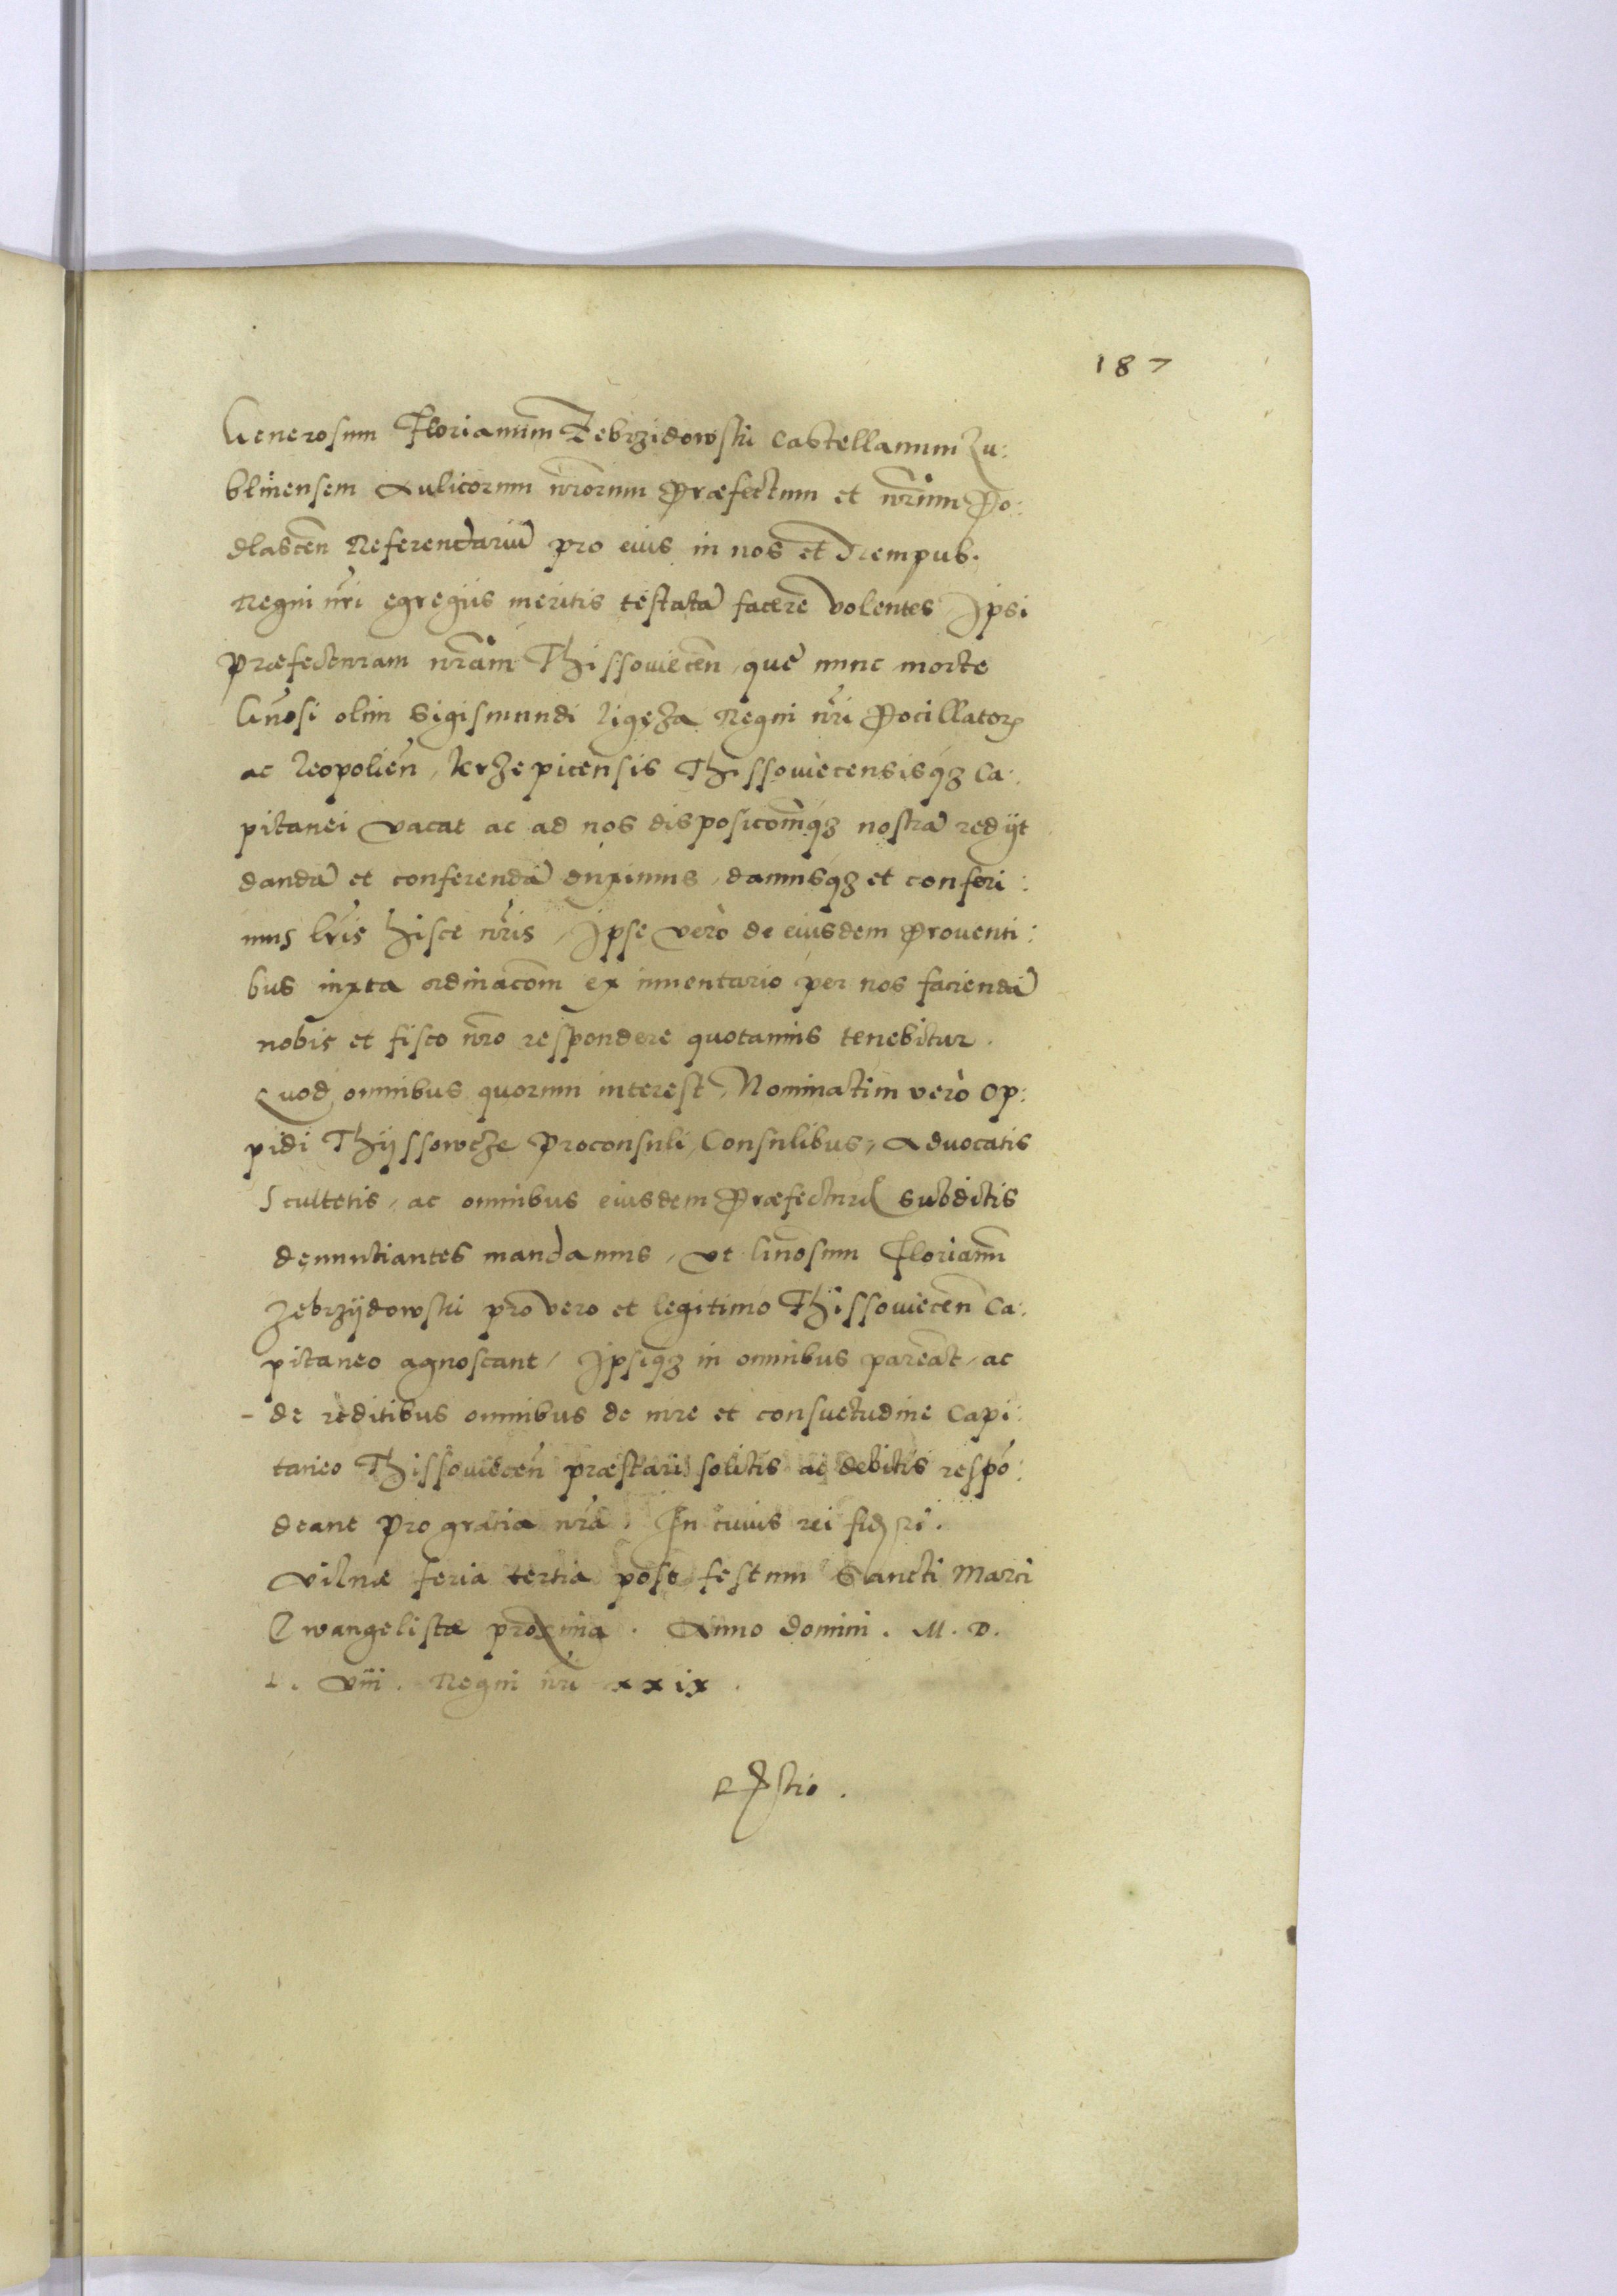 187
Generosum Florianum Zebrzidowski Castellanum Lu:
blinensem Aulicorum nr̄orum Præfectum et nr̄um Po:
dlascen̄ Referendariū pro eius in nos et Rempub.
Regni nr̄i egregiis meritis testatā facere volentes, Ipsi
Præfecturam nr̄am Thissouiecen̄, quę nunc morte
Gn̄osi olim Sigismundi Ligęza Regni nr̄i Pocillator
ac Leopolien̄, Krzepicensis Thissouiecensisq3 Ca:
pitanei vacat ac ad nos disposicōmq3 nostrā redijt
dandā et conferendā duximus, damusq3 et conferi:
mus lr̄is hisce nr̄is, Ipse verò de eiusdem Prouenti:
bus iuxta ordinacōm ex inuentario per nos faciendā
nobis et fisco nr̄o respondere quotannis tenebitur.
Quod omnibus quorum interest, Nominatim verò op:
pidi Thyssowcze Proconsuli, Consulibus, Aduocatis
Scultetis, ac omnibus eiusdem Præfecturæ subditis
denuntiantes mandamus, vt Gn̄osum Florianū
Zebrzijdowski pro vero et legitimo Thissouiecen̄ Ca:
pitaneo agnoscant, Ipsiq3 in omnibus pareāt, ac
- de reditibus omnibus de iure et consuetudine Capi:
taneo Thissouiecen̄ præstari solitis ac debitis respō:
deant pro gratia nr̄a. In cuius rei fid
Vilnæ feria tertia post festum Sancti Marci
Ewangelistæ proxima. Anno domini. M. D.
L. viii. Regni nr̄i xxix.